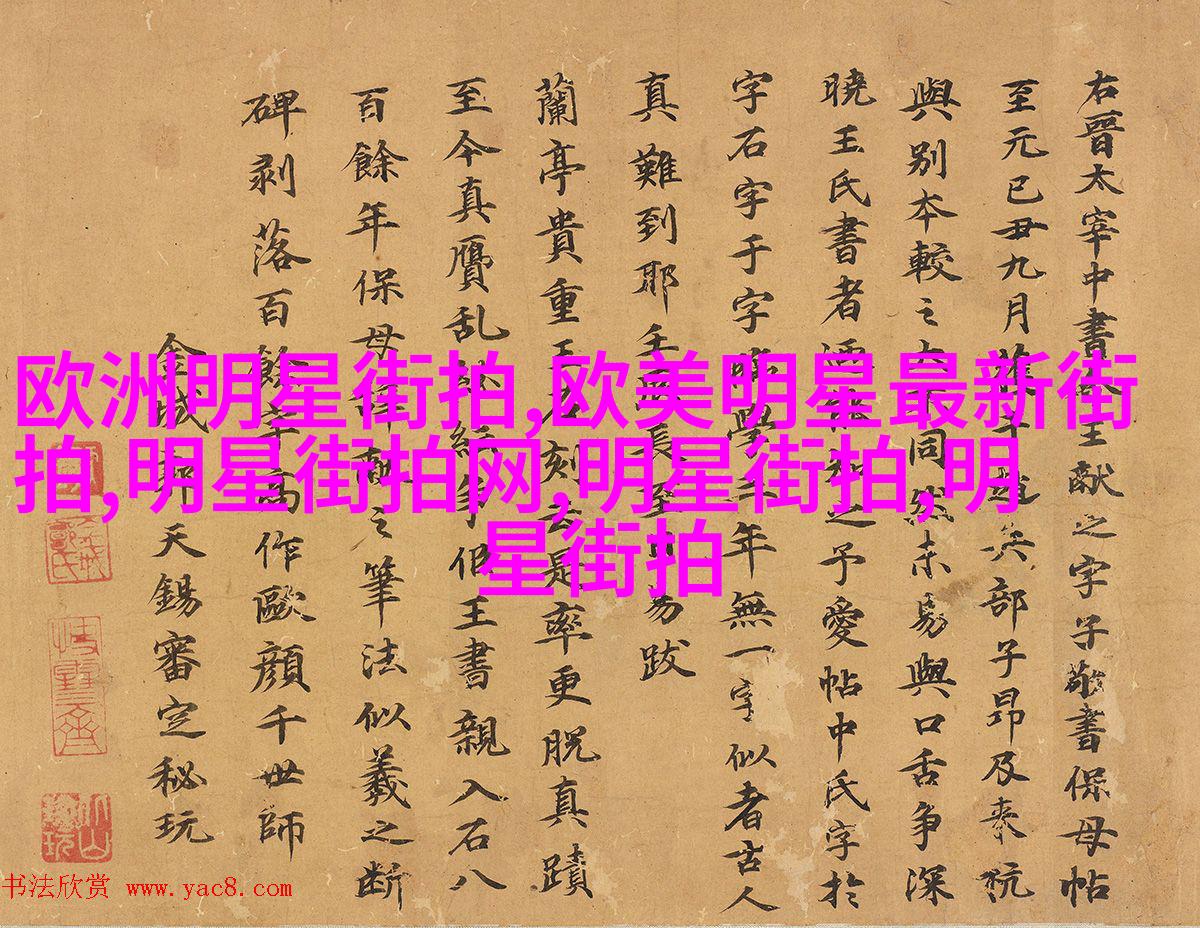 右晉太宰中書令王獻之字子敬書保母帖
至元己丑九月于兵部子昂及来杭
與別本較之不同然未易與口舌争深
曉王氏書者之予愛帖中氏字於
字石字于字學三年無一字似者古人
真難到耶壬辰長至日易跋
蘭亭貴重王石刻云是率更脱真蹟
至今真贋乱紛争但王書親入石八
百餘年保母之筆法似羲之断
碑剥落百餘年為作歐顔千世師
金城郭天錫審定秘玩
欧洲明星街拍,欧美明星最新街
拍,明星街拍网,明星街拍,明
星街拍
书法欣赏 www.yac8.com